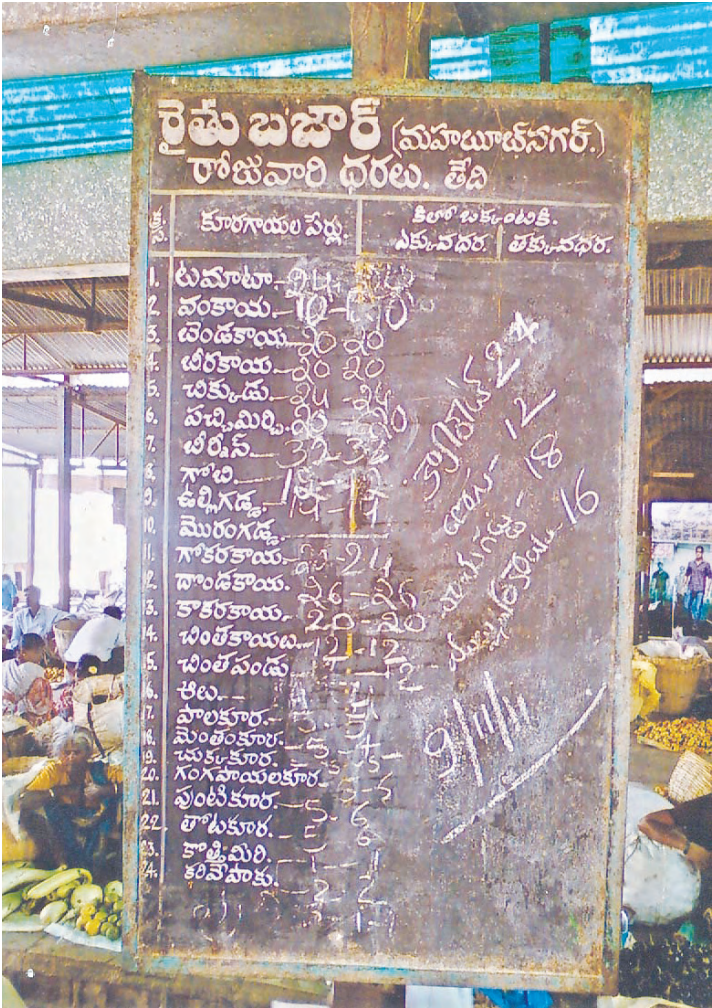 రైతు బజార్ (మహబూబ్‌నగర్.)
రోజువారి ధరలు. తేది
క్ర.సం. కూరగాయల పేర్లు. కిలో ఒక్కంటికి.
ఎక్కువధర. తక్కువధర.
1. టమాటా - 24
2. వంకాయ. - 10 -
3. బెండకాయ - 20 20
4. బీరకాయ - 20 20
5. చిక్కుడు - 24 - 24
6. పచ్చిమిర్చి. - 20 - 20
7. బీర్నీస్ - 32 - 32
8. గోబి. - 18 -
9. ఉల్లిగడ్డ. - 14 - 14
10. మొరంగడ్డ.
11. గోకరకాయ - 24
12. దొండకాయ. - 26 - 26
13. కాకరకాయ. - 20 - 20
14. చింతకాయలు - 12 - 12
15. చింతపండు - 12
16. ఆలు -
17. పాలకూర. - 5
18. మెంతంకూర. - 5
19. చుక్కకూర. - 5 - 5
20. గంగవాయలకూర
21. పుంటికూర. - 5 - 6
22. తోటకూర. - 5 6
23. కొత్తిమిరి. - 1 - 1
24. కరివేపాకు. - 2 2
క్యారెట్ 24
12
18
16
9/11/11